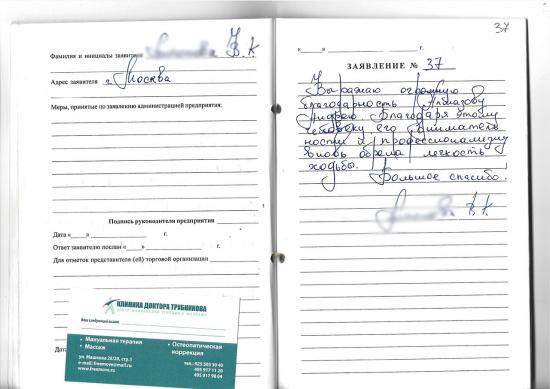 Фамилия и инициалы заявителя В. К
Адрес заявителя г. Москва
Меры, принятые по заявлению администрацией предприятия:
Подпись руководителя предприятия
Дата «___» г.
Ответ заявителю послан «___» г.
Для отметок представителя (ей) торговой организации
КЛИНИКА ДОКТОРА ТРУБНИКОВА
ЦЕНТР МАНУАЛЬНОЙ ТЕРАПИИ И МАССАЖА
• Мануальная терапия
• Массаж
• Остеопатическая коррекция
ул. Машкова 28/20, стр.1
e-mail: freemove@mail.ru
www.freemove.ru
тел.: 925 585 30 40
495 917 11 20
495 917 98 04
Дата
37
«___» г.
ЗАЯВЛЕНИЕ № 37
Выражаю огромную
благодарность
Андрею. Благодаря этому
человеку его вниматель
ности и профессионализму
вновь обрела легкость
ходьбы.
Большое спасибо.
В. К